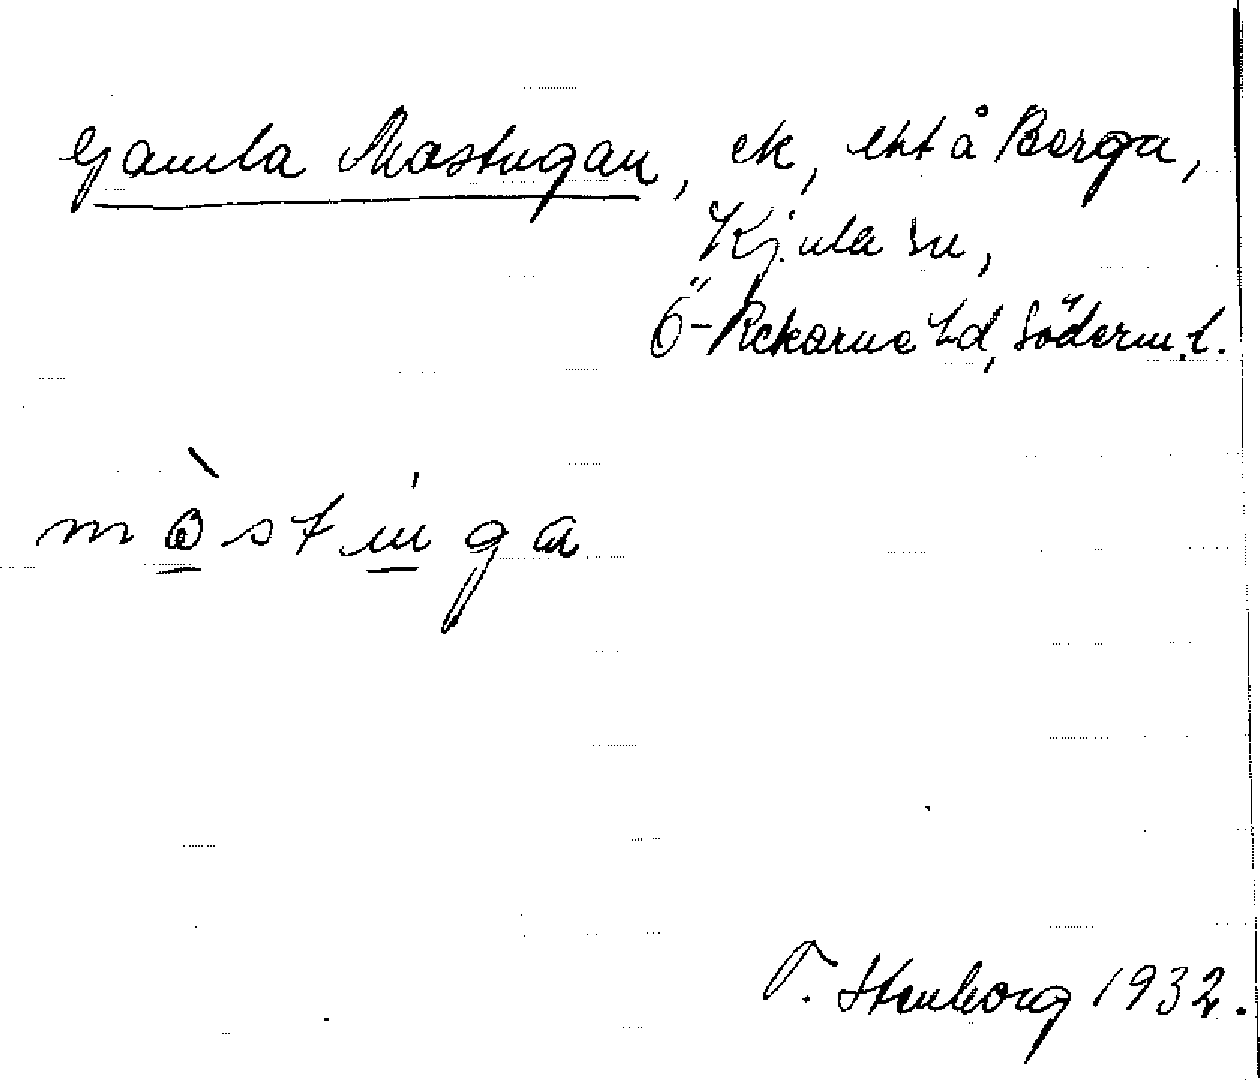 Gamla Mostugan, ek, ext å Berga,
Kjula sn,
Ö-Rekarne hd, Söderm. l.
mòstuga
T. Stenborg 1932.